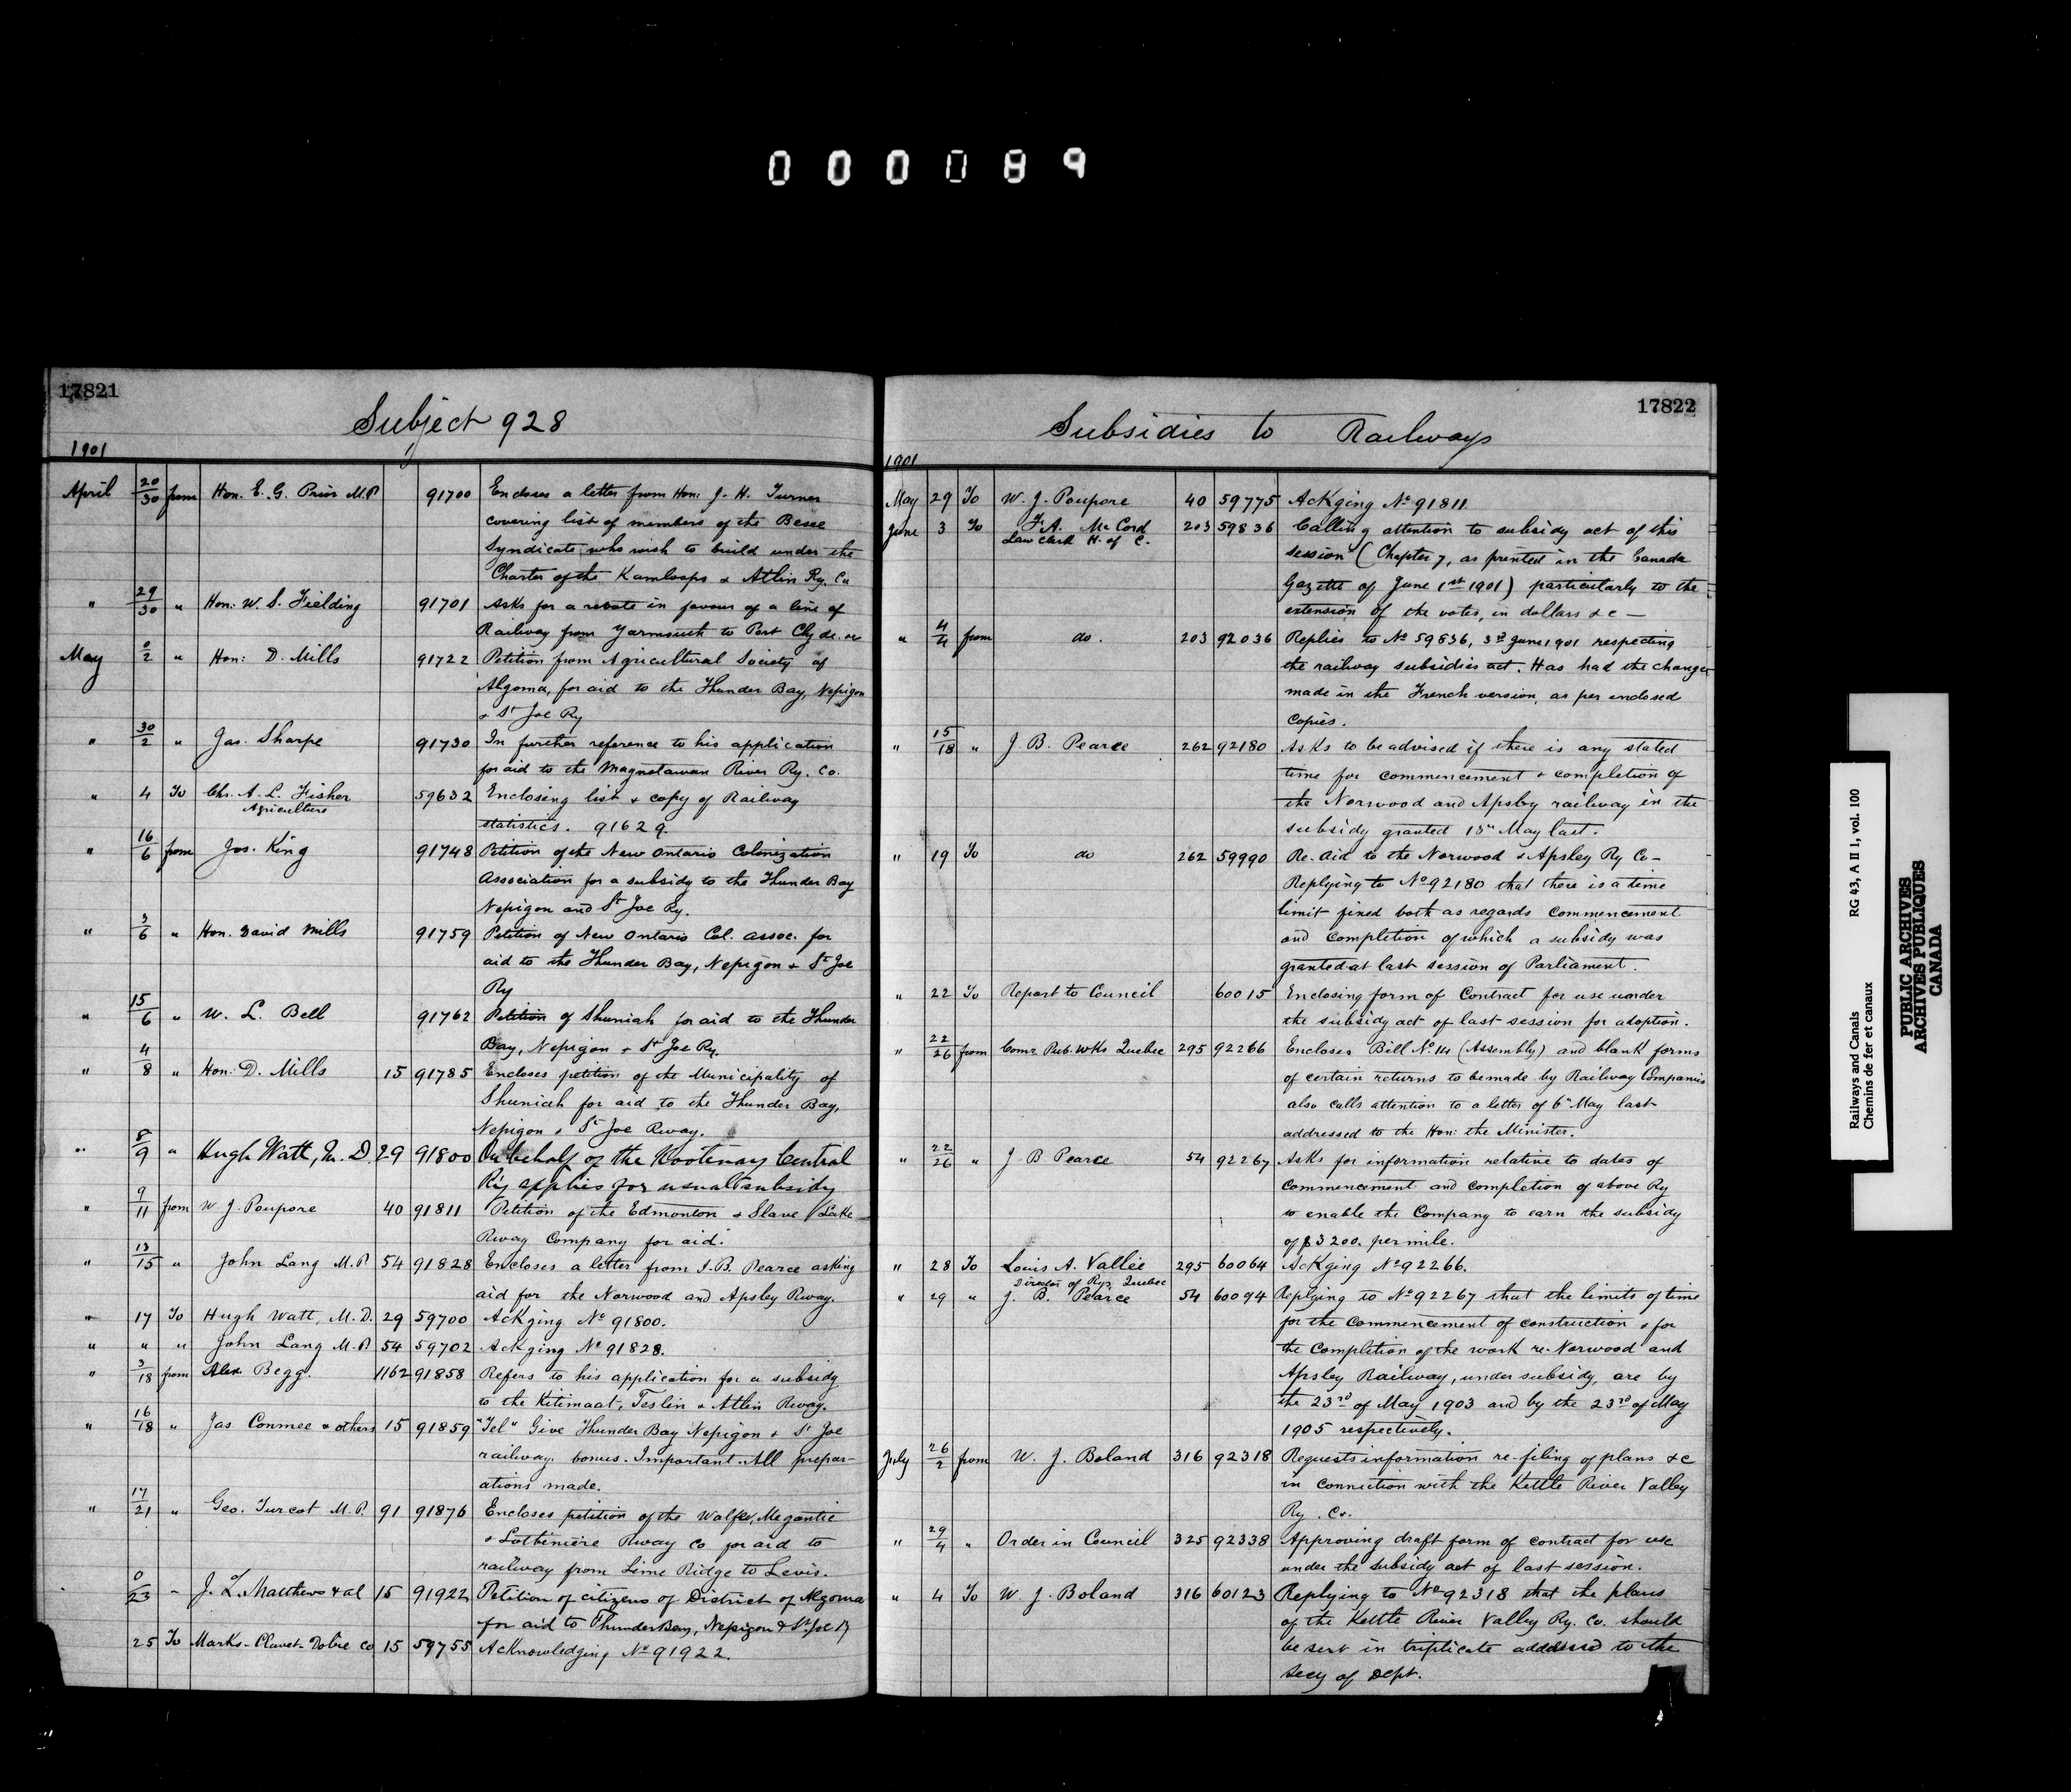 000089
17821
Subject 928
1901
April 20/30 from Hon. E. G. Prior M.P 91700 Encloses a letter from Hon: J. H. Turner
covering list of members of the
Syndicate who wish to build under the
Charter of the Kamloops & Atlin Ry. Co
" 29/30 " Hon: W. S. Fielding 91701 Asks for a in favour of a line of
Railway from Yarmouth to Port Clyde.
May 0/2 " Hon: D. Mills 91722 Petition from Agricultural Society of
Algoma, for aid to the Thunder Bay, Nepigon
& St Joe Ry
" 30/2 " Jas. Sharpe 91730 In further reference to his application
for aid to the Magnetawan River Ry. Co.
" 4 To Chs. A. L. Fisher 59632 Enclosing list & copy of Railway
Agriculture
statistics. 91629.
" 16/6 from Jos. King 91748 Petition of the New Ontario Colonization
Association for a subsidy to the Thunder Bay
Nepigon and St Joe Ry.
" 3/6 " Hon. David Mills 91759 Petition of New Ontario Col. Assoc. for
aid to the Thunder Bay, Nepigon & St Joe
Ry
" 15/6 " W. L. Bell 91762 Petition of Shuniah for aid to the Thunder
Bay, Nepigon & St Joe Ry.
" 4/8 " Hon: D. Mills 15 91785 Encloses petition of the Municipality of
Shuniah for aid to the Thunder Bay,
Nepigon & St Joe Rway.
" 8/9 " Hugh Watt, M. D. 29 91800 On behalf of the Kootenay Central
Ry applies for usual subsidy
" 9/11 from W J. Poupore 40 91811 Petition of the Edmonton & Slave Lake
Rway Company for aid.
" 13/15 " John Lang M. P. 54 91828 Encloses a letter from J. B. Pearce asking
aid for the Norwood and Apsley Rway.
" 17 To Hugh Watt, M. D. 29 59700 Ackging No 91800.
" " " John Lang M. P. 54 59702 Ackging No 91828.
" 3/18 from Alex Begg. 1162 91858 Refers to his application for a subsidy
to the Kitimaat, Teslin & Atlin Rway.
" 16/18 " Jas. Conmee & others 15 91859 "Tel" Give Thunder Bay Nepigon & St Joe
railway. bonus. Important. All prepar-
ations made.
" 17/21 " Geo. Turcot M. P. 91 91876 Encloses petition of the Wolfe, Megantic
& Lotbiniere Rway Co for aid to
railway from Lime Ridge to Levis.
0/23 " J. L. Matthews & al 15 91922 Petition of citizens of District of Algoma
for aid to Thunder Bay, Nepigon & St. Joe Ry
25 To Marks-Clavet-Dobie Co 15 59755 Acknowledging No 91922.
17822
Subsidies to Railways
1901
May 29 To W. J. Poupore 40 59775 Ackging No 91811.
June 3 To F. A. McCord 203 59836 Calling attention to subsidy act of this
Law clerk H. of C.
session (Chapter 7, as printed in the Canada
Gazette of June 1st 1901) particularly to the
extension of the votes, in dollars &c —
" 4/4 from do. 203 92036 Replies to No 59836, 3rd June 1901 respecting
the railway subsidies act. Has had the changes
made in the French version, as per enclosed
copies.
" 15/18 " J B. Pearce 262 92180 Asks to be advised if there is any stated
time for commencement & completion of
the Norwood and Apsley railway in the
subsidy granted May last.
" 19 To do 262 59990 Re. Aid to the Norwood & Apsley Ry Co —
Replying to No 92180 that there is a time
limit fixed both as regards commencement
and completion of which a subsidy was
granted at last session of Parliament.
" 22 To Report to Council 60015 Enclosing form of Contract for use under
the subsidy act of last session for adoption.
" 22/26 from Comr Pub. Wks Quebec 295 92266 Encloses Bill No (Assembly) and blank forms
of certain returns to be made by Railway Companies
also calls attention to a letter of 6th May last
addressed to the Hon: the Minister.
" 22/26 " J. B Pearce 54 92267 Asks for information relative to dates of
commencement and completion of above Ry
to enable the Company to earn the subsidy
of $3200. per mile.
" 28 To Louis A. Vallée 295 60064 Ackging No 92266.
Director of Rys, Quebec
" 29 " J. B. Pearce 54 60094 Replying to No 92267 that the limits of time
for the Commencement of construction & for
the completion of the work re. Norwood and
Apsley Railway, under subsidy, are by
the 23rd of May 1903 and by the 23rd of May
1905 respectively.
July 26/2 from W. J. Boland 316 92318 Requests information re. filing of plans &c
in connection with the Kettle River Valley
Ry. Co.
" 29/4 " Order in Council 325 92338 Approving draft form of contract for use
under the subsidy act of last session.
" 4 To W. J. Boland 316 60123 Replying to No 92318 that the plans
of the Kettle River Valley Ry. Co. should
be sent in triplicate addressed to the
Secy of Dept.
Railways and Canals RG 43, A II 1, vol. 100
Chemins de fer et canaux
PUBLIC ARCHIVES
ARCHIVES PUBLIQUES
CANADA